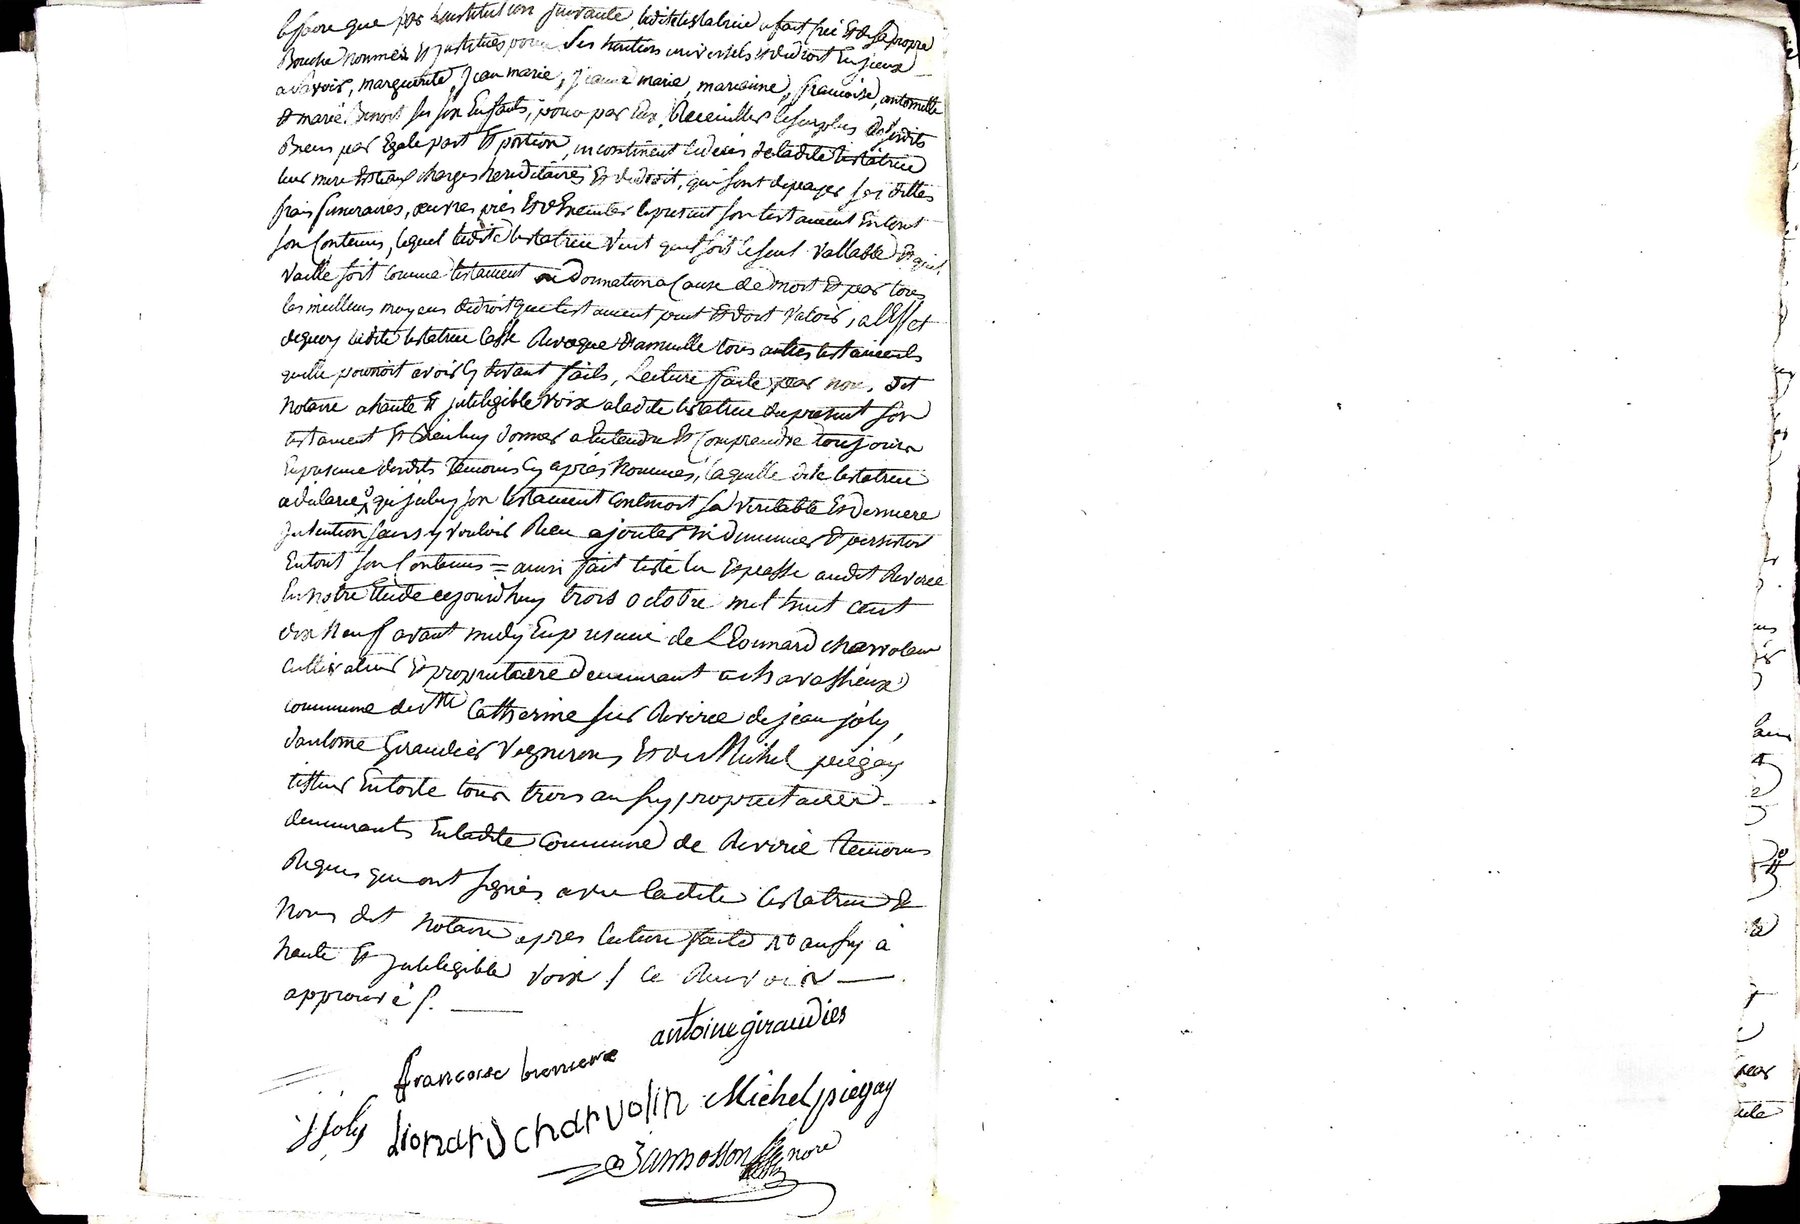 que par l'institution suivante laditte testatrice a fait crie et de sa propre
Bouche nommés et justitués pour ses heritiers universels et de droit Enjeux
a savoir, marguerite, jean marie, jeanne marie, marianne, francoise, antoinette
et marie Benoit ses six Enfants, pour par Eux Receuillir le surplus desdits
Biens par Egale part et portion, incontinent le décès de ladite testatrice
leur mere et aux charges hereditaires et de droit, qui sont de payer ses dittes
frais funeraires, œuvres pies et d'Executer le present son testament En tout
son Contenus, lequel ladite testatrice veut quil soit le seul vallable et quil
vaille soit comme testament ou donnation a Cause de mort et par tous
les meilleurs moyens de droit que testament peut et doit valoir, a l'Effet
dequoy ladite testatrice Casse Revoque et annulle tous autres testaments
quelle pourroit avoir cy devant faits, Lecture faite par nous dit
Notaire a haute et jntelegible voix a ladite testatrice du present son
testament et bien luy donner a Entendre et Comprendre toujours
En presence desdits temoins cy après Nommés, laquelle dite testatrice
a déclaré qu'jceluy son testament Contenoit sa veritable et derniere
jntention sans y vouloir Rien ajouter ni diminuer et persister
En tout son Contenus = ainsi fait testé lu Et passé audit Riverie
En notre Etude ce jourd'huy trois octobre mil huit cent
dix Neuf avant midy En presence de Léonard charvolin
Cultivateur et proprietaere demeurant a chavassieux
commune de Ste Catherine sur Riverie de jean joly,
d'antoine Giraudier vignerons Et de Michel piegay
tisseur En toile tous trois aussy proprietaires
demeurants En ladite Commune de Riverie temoins
Requis qui ont signés avec ladite testatrice et
Nous dit notaire apres lecture faite aussy à
haute et jntelegible voix / le Renvoir
approuvé /.
antoine giraudier
francoise
jjoly Lionard charvolin Michel piegay
nore